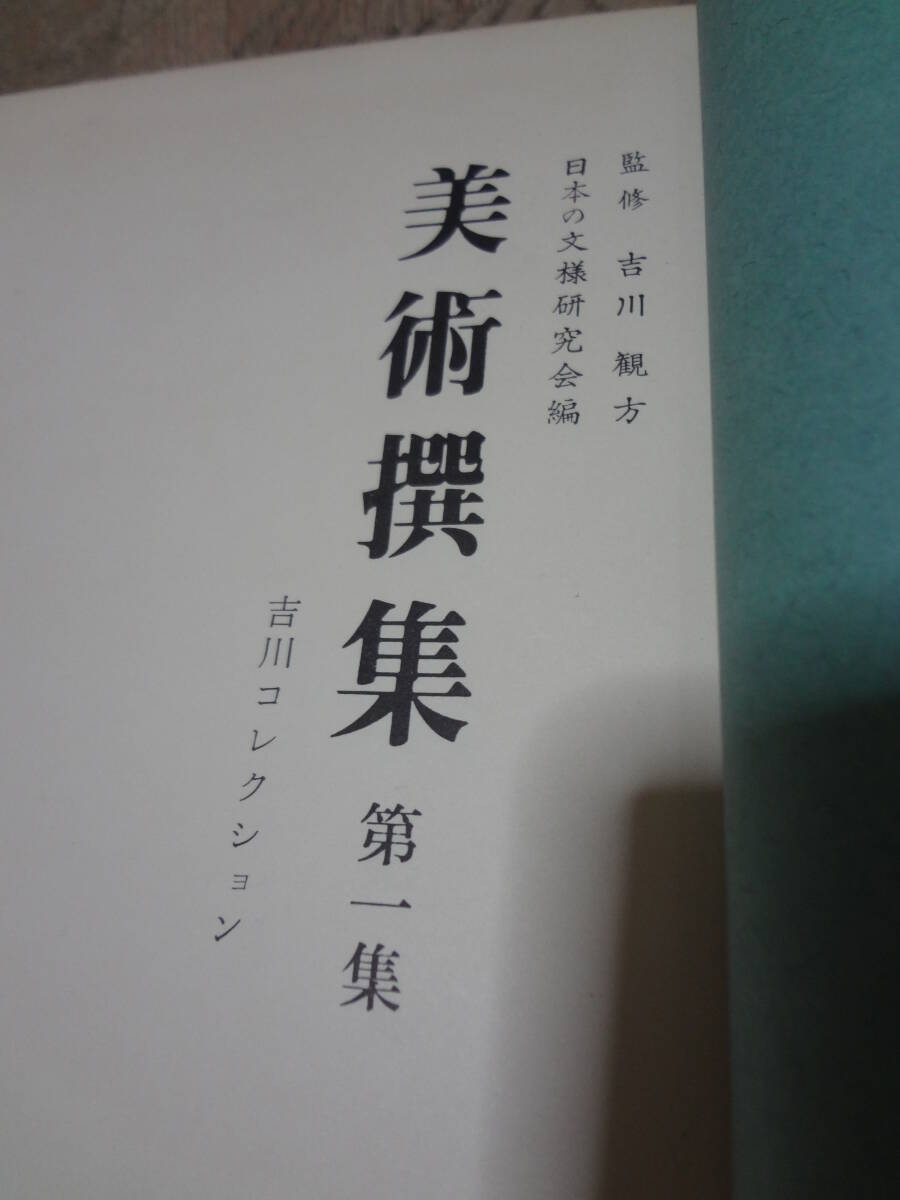 監修 吉川観方
日本の文様研究会編
美術撰集 第一集
吉川コレクション